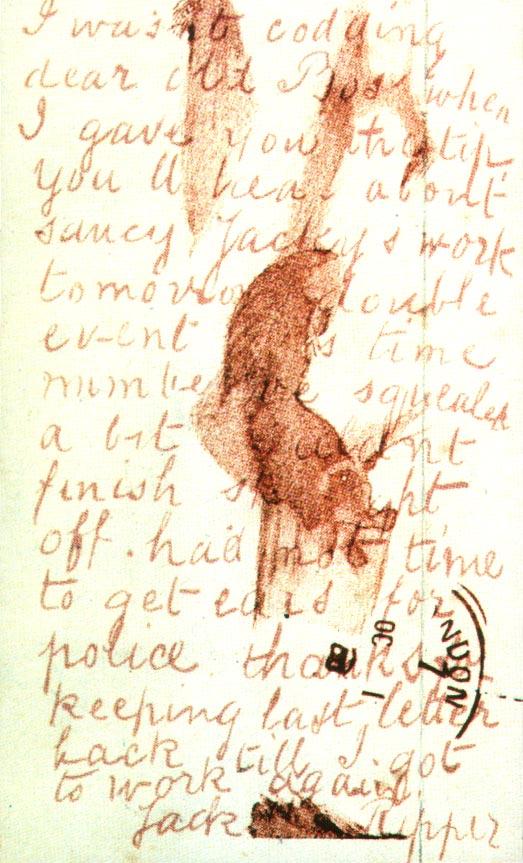 I wasnt codding
dear old Boss when
I gave you the tip,
you ll hear about
saucy Jackys work
tomorrow double
event time
number squealed
a bit
finish
off. had not time
to get ears for
police thanks
keeping last letter
back till I got
to work again
Jack Ripper